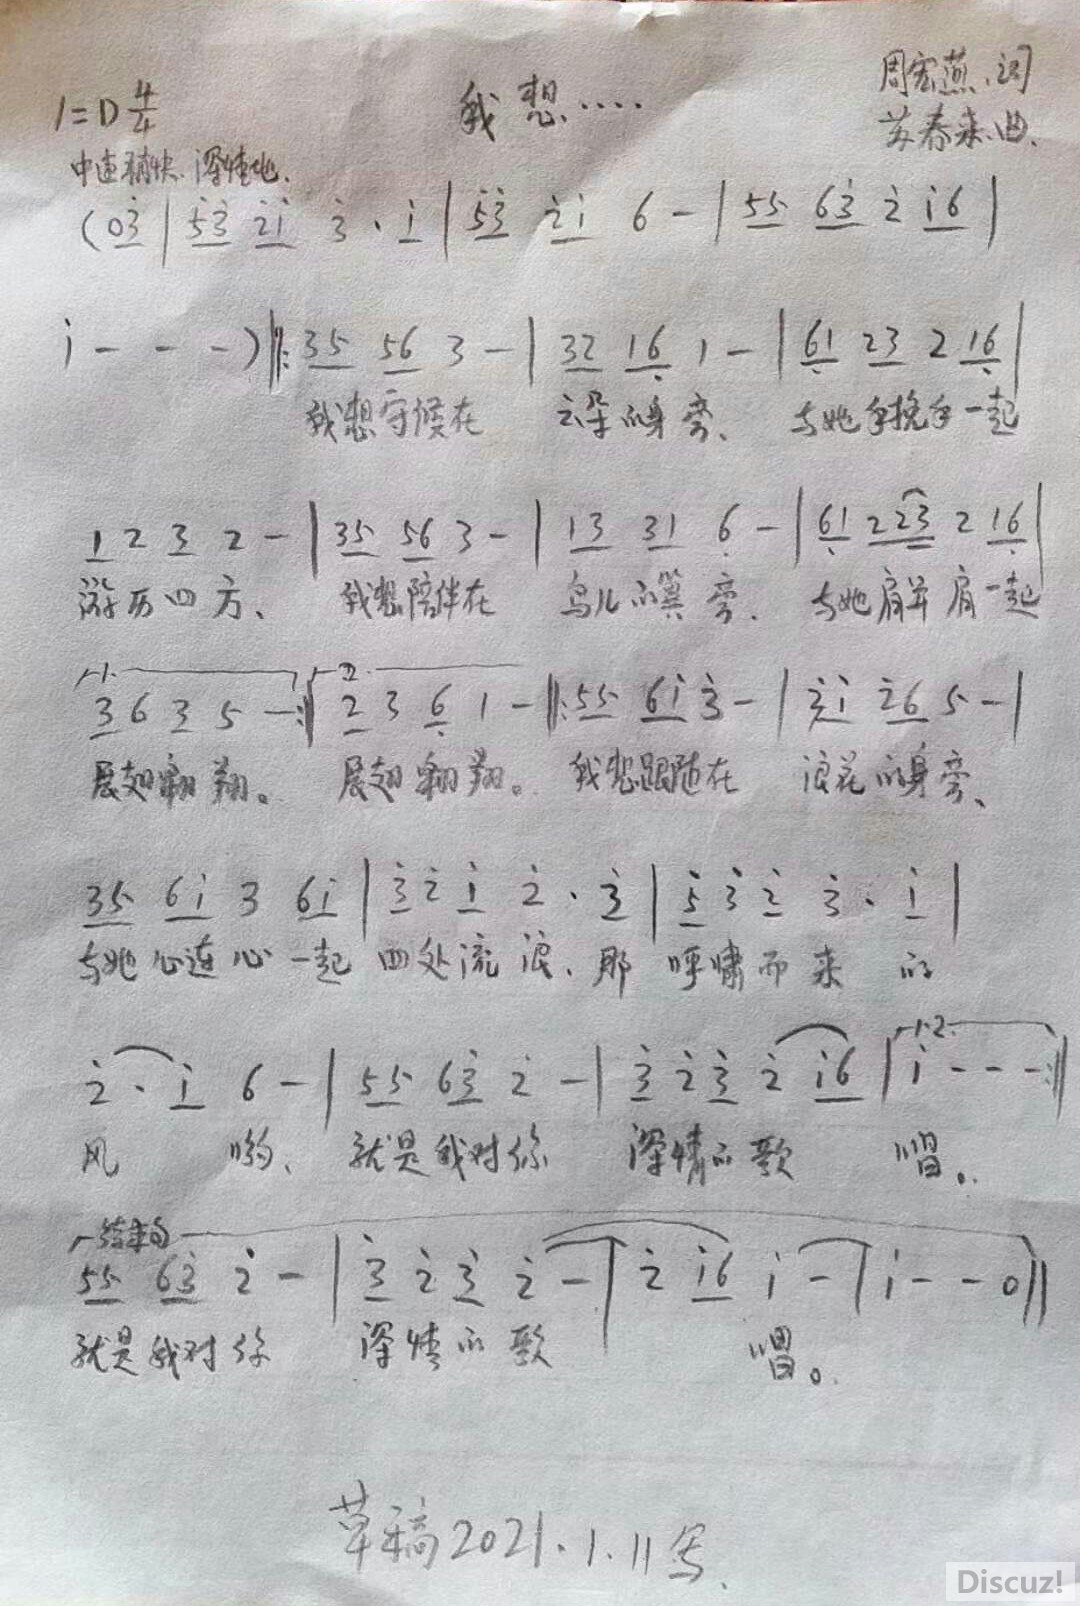 1=D 4/4
我想····
周宏燕.词
苏春来.曲.
中速稍快.深情地.
(03̇ | 5̇3̇ 2̇1̇ 3̇ · 1̇ | 5̇3̇ 2̇1̇ 6 - | 55 63̇ 2̇ 1̇6 |
1̇ - - -) ‖: 35 56 3 - | 32 16̣ 1 - | 6̣1 23 2 16̣ |
我想守候在 云朵的身旁、 与她手挽手一起
1 2 3 2 - | 35 56 3 - | 13 31 6̣ - | 6̣1 223 2 16̣ |
游历四方、 我想陪伴在 鸟儿的翼旁、 与她肩并肩一起
1. 2.
3 6 3 5 - :‖ 2 3 6̣ 1 - ‖: 55 61̇ 3̇ - | 3̇1̇ 2̇6 5 - |
展翅翱翔。 展翅翱翔。 我想跟随在 浪花的身旁、
35 61̇ 3 61̇ | 3̇ 2̇ 1̇ 2̇ · 3̇ | 5̇ 3̇ 2̇ 3̇ · 1̇ |
与她心连心一起 四处流浪、那 呼啸而来 的
1.2.
2̇ · 1̇ 6 - | 55 63̇ 2̇ - | 3̇ 2̇ 3̇ 2̇ 1̇6 | 1̇ - - - :‖
风 哟、 就是我对你 深情的歌 唱。
结束句
55 63̇ 2̇ - | 3̇ 2̇ 3̇ 2̇ - | 2̇ 1̇6 1̇ - | 1̇ - - 0 ‖
就是我对你 深情的歌 唱。
草稿2021.1.11写.
Discuz!